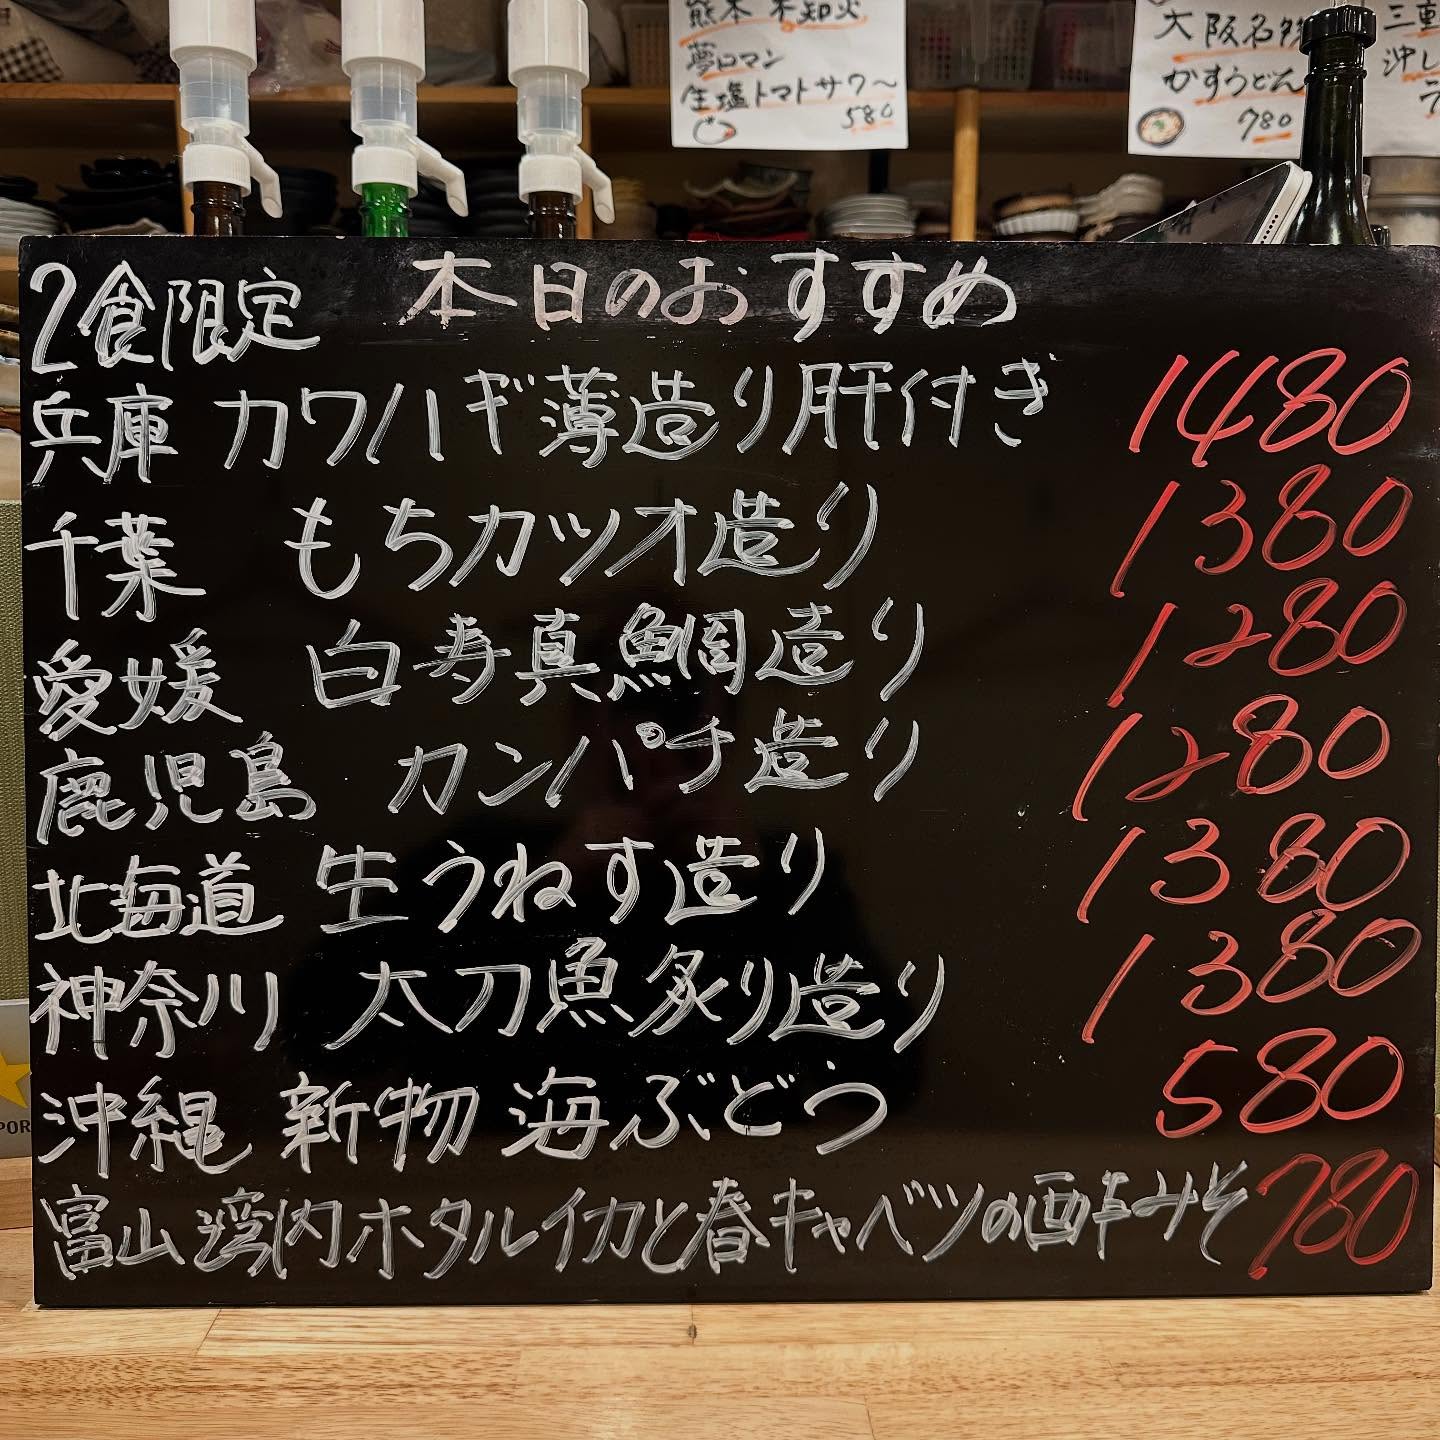 熊本 不知火
夢ロマン
生塩トマトサワ〜
580
大阪名物
かすうどん
780
三重
沖し
本日のおすすめ
2食限定
兵庫 カワハギ薄造り肝付き 1480
千葉 もちカツオ造り 1380
愛媛 白寿真鯛造り 1280
鹿児島 カンパチ造り 1280
北海道 生うねす造り 1380
神奈川 太刀魚炙り造り 1380
沖縄 新物 海ぶどう 580
富山湾内ホタルイカと春キャベツの酉辛みそ 780
POR